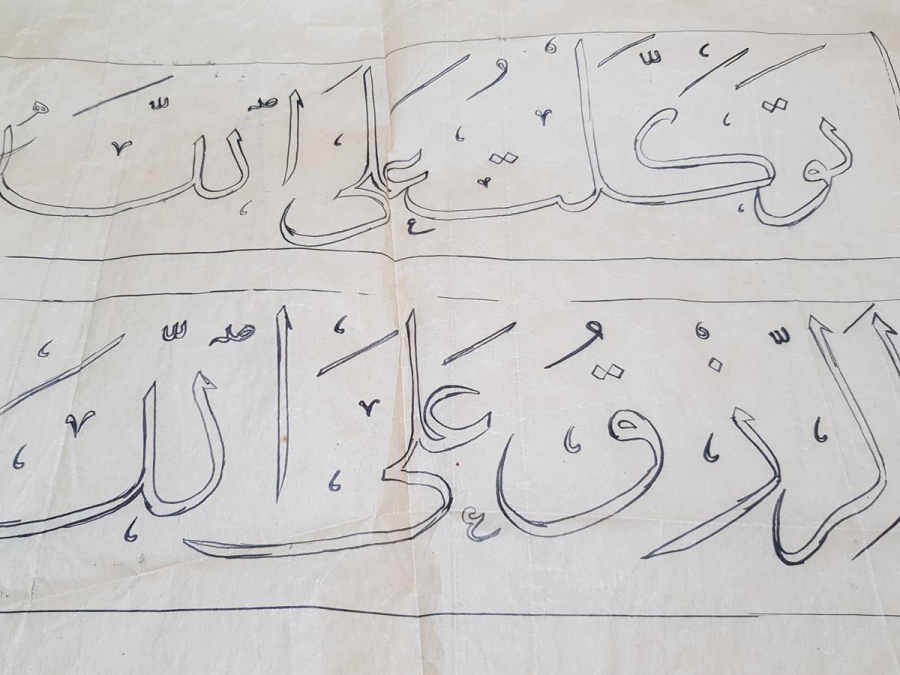 تَوَكَّلْتُ عَلَى اللّٰه
الرِّزْقُ عَلَى اللّٰه